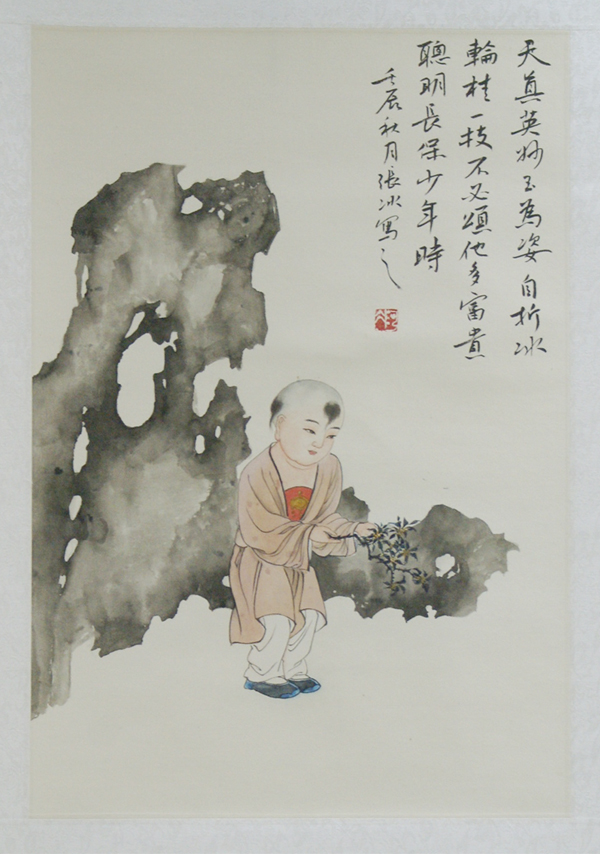 天真英妙玉為姿自折冰
輪桂一枝不必頌他多富貴
聰明長保少年時
壬辰秋月張冰寫之